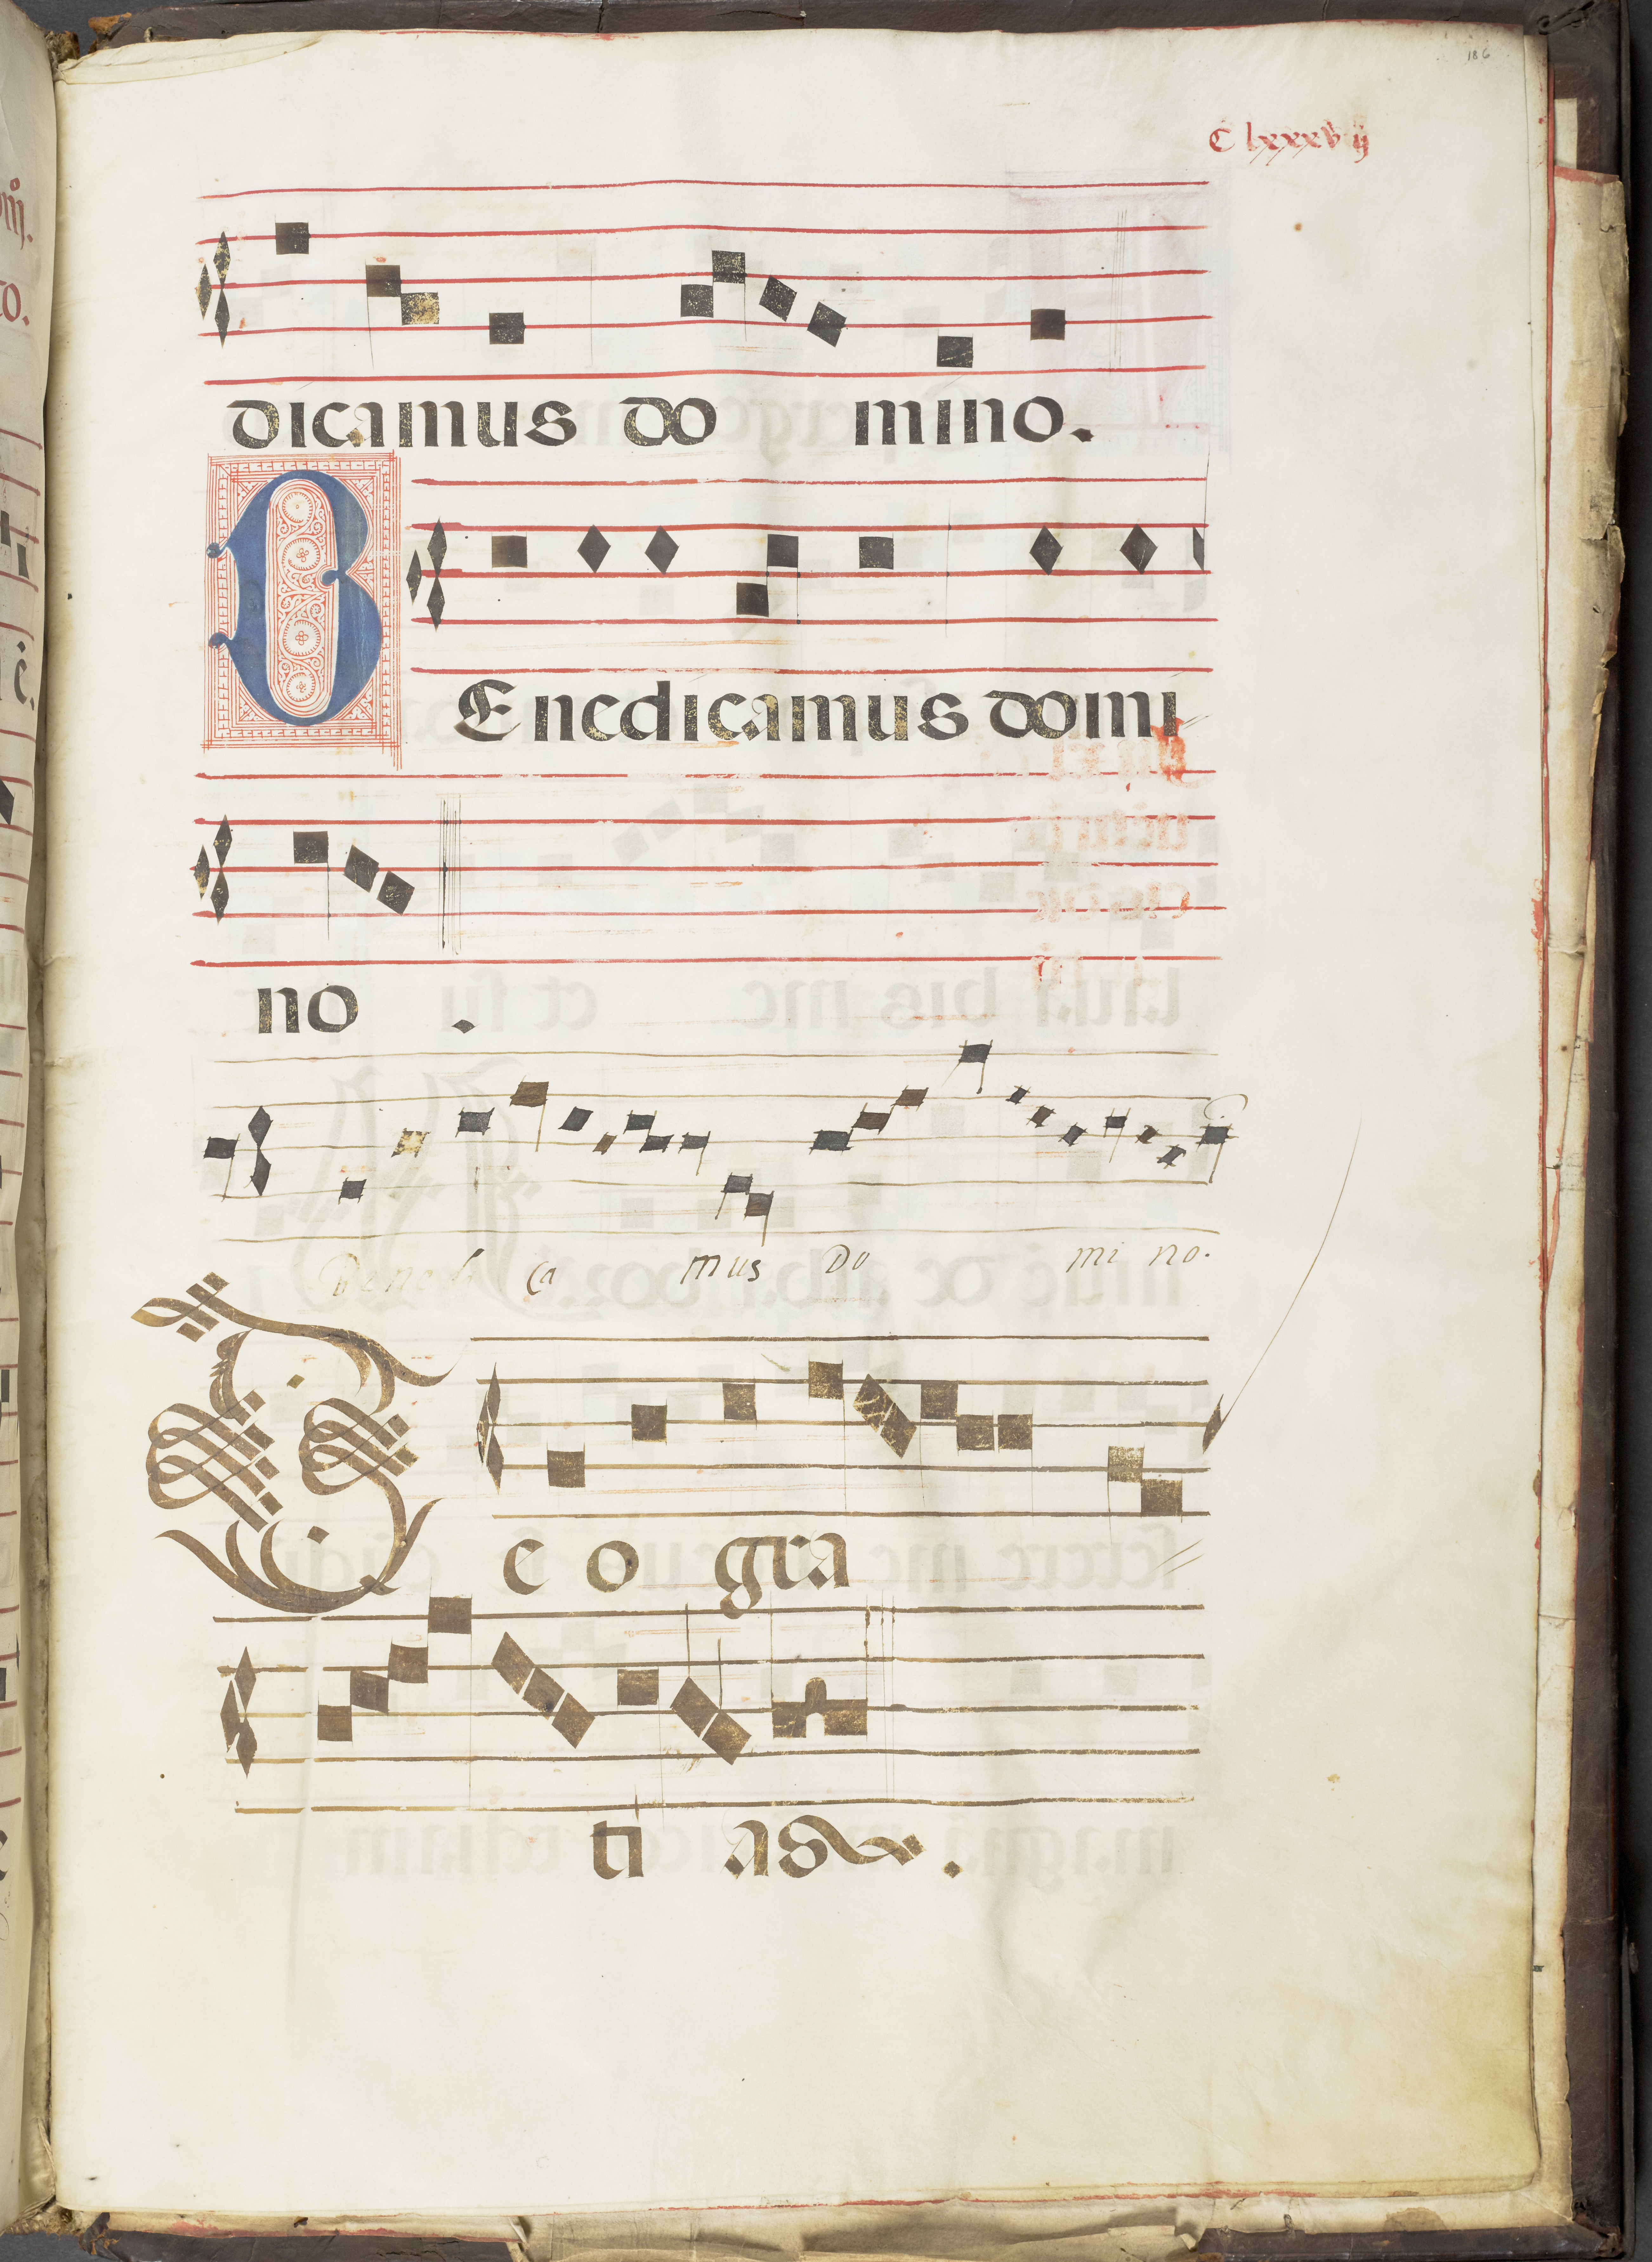 186
C lxxxv ij
dicamus do mino.
BEnedicamus domi//
no.
Benedi ca mus Do mi no.
Deo gra //
ti as.